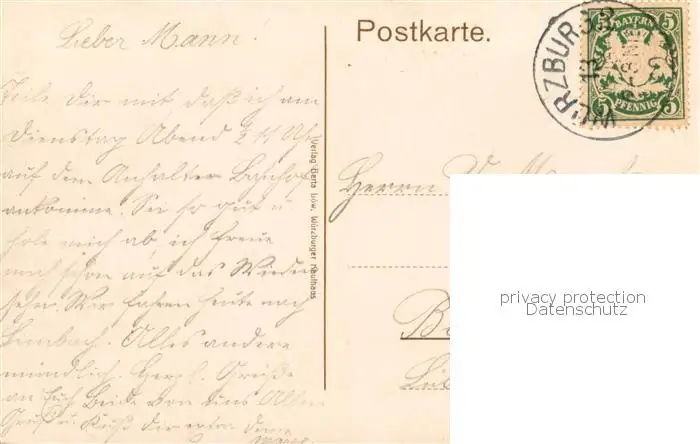 Lieber Mann!
Teile Dir mit daß ich am
Dienstag Abend ½ 11 Uhr
auf dem Anhalter Bahnhof
ankomme. Sei so gut u
hole mich ab, ich freue
mich schon auf das Wieder
sehen. Wir fahren heute nach
Alles andere
mündlich. Herzl. Grüße
an Euch Beide von uns Allen
Gruß u. Kuß
Deine
Verlag Berta Löw, Würzburger Kaufhaus
Postkarte.
WÜRZBURG
5 BAYERN 5
5 PFENNIG 5
Herrn
privacy protection
Datenschutz